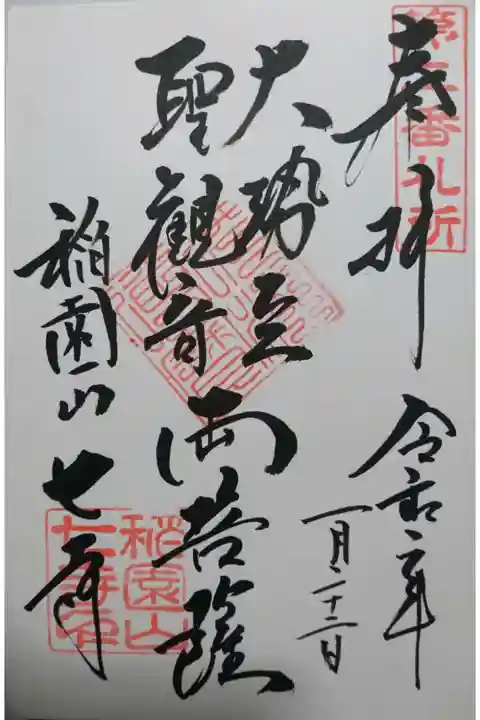 奉拝
令和二年
一月二十二日
大勢至
聖観音
両菩薩
稲園山 七寺
番札所
稲園山
七寺